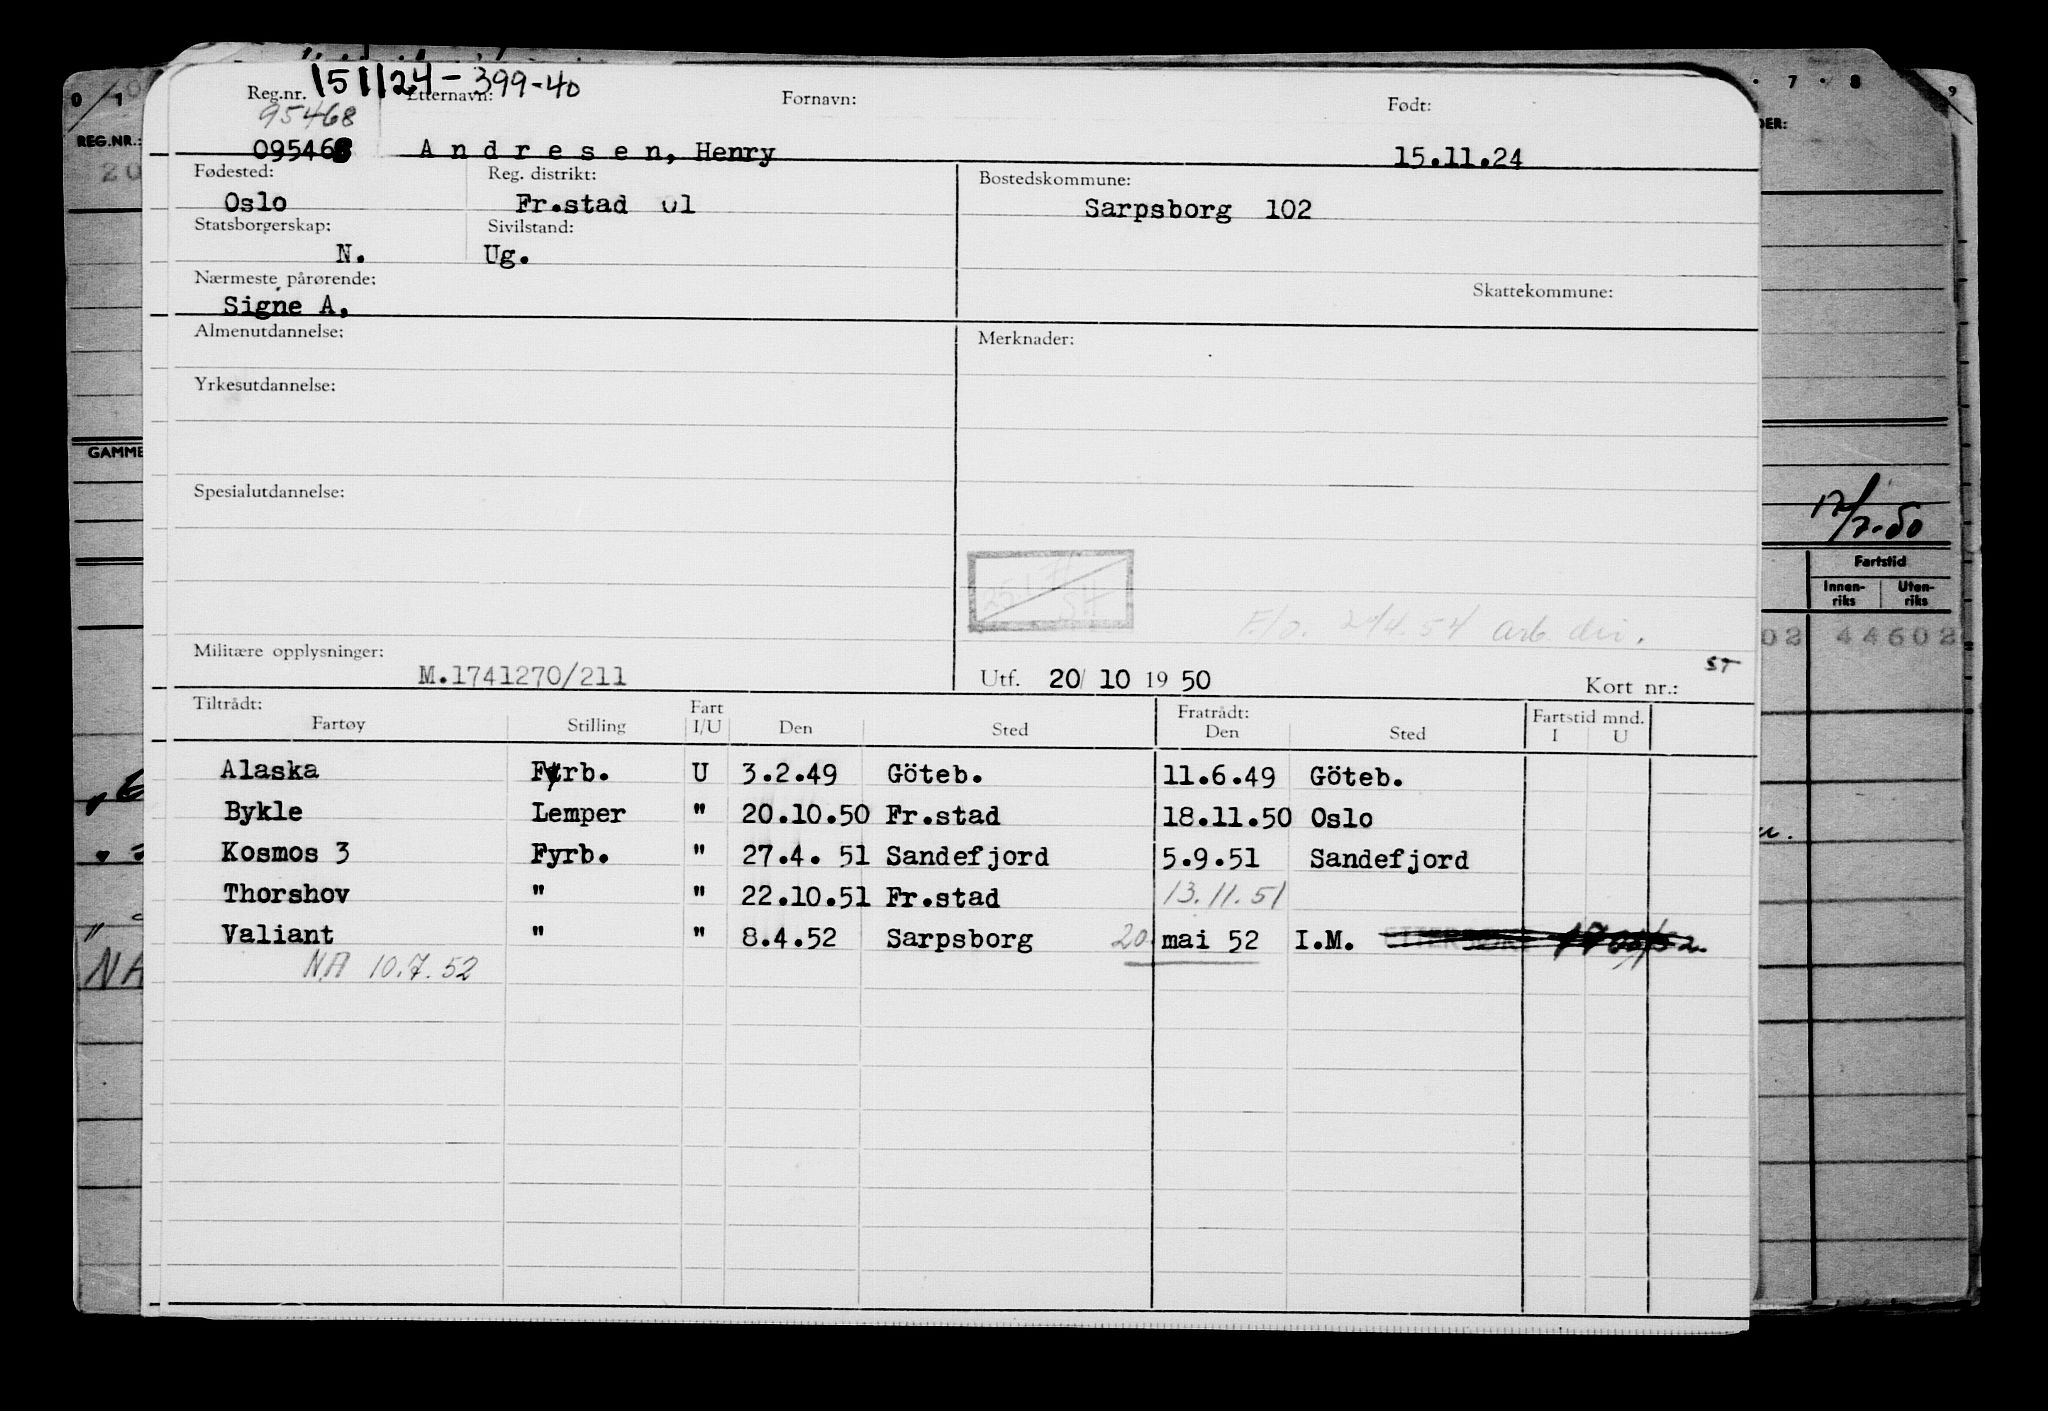 151124-399-40
Reg.nr. Etternavn: Fornavn: Født:
95468
095468 Andresen, Henry 15.11.24
Fødested: Reg. distrikt: Bostedskommune:
Oslo Fr.stad 01 Sarpsborg 102
Statsborgerskap: Sivilstand:
N. Ug.
Nærmeste pårørende: Skattekommune:
Signe A,
Almenutdannelse: Merknader:
Yrkesutdannelse:
Spesialutdannelse:
F./o. 2/4.54 arb. div.
Militære opplysninger: ST
M.1741270/211 Utf. 20/ 10 19 50 Kort nr.:
Tiltrådt: Fart Fratrådt: Fartstid mnd.
Fartøy Stilling I/U Den Sted Den Sted I U
Alaska Fyrb. U 3.2.49 Göteb. 11.6.49 Göteb.
Bykle Lemper " 20.10.50 Fr.stad 18.11.50 Oslo
Kosmos 3 Fyrb. " 27.4. 51 Sandefjord 5.9.51 Sandefjord
Thorshov " " 22.10.51 Fr.stad 13.11.51
Valiant " " 8.4.52 Sarpsborg 20. mai 52 I.M.
NA 10.7.52
0 1
REG.NR.:
20
GAMME
NA
7 8 9
DER:
12/2.50
Fartstid
Innen-riks Uten-riks
02 44602